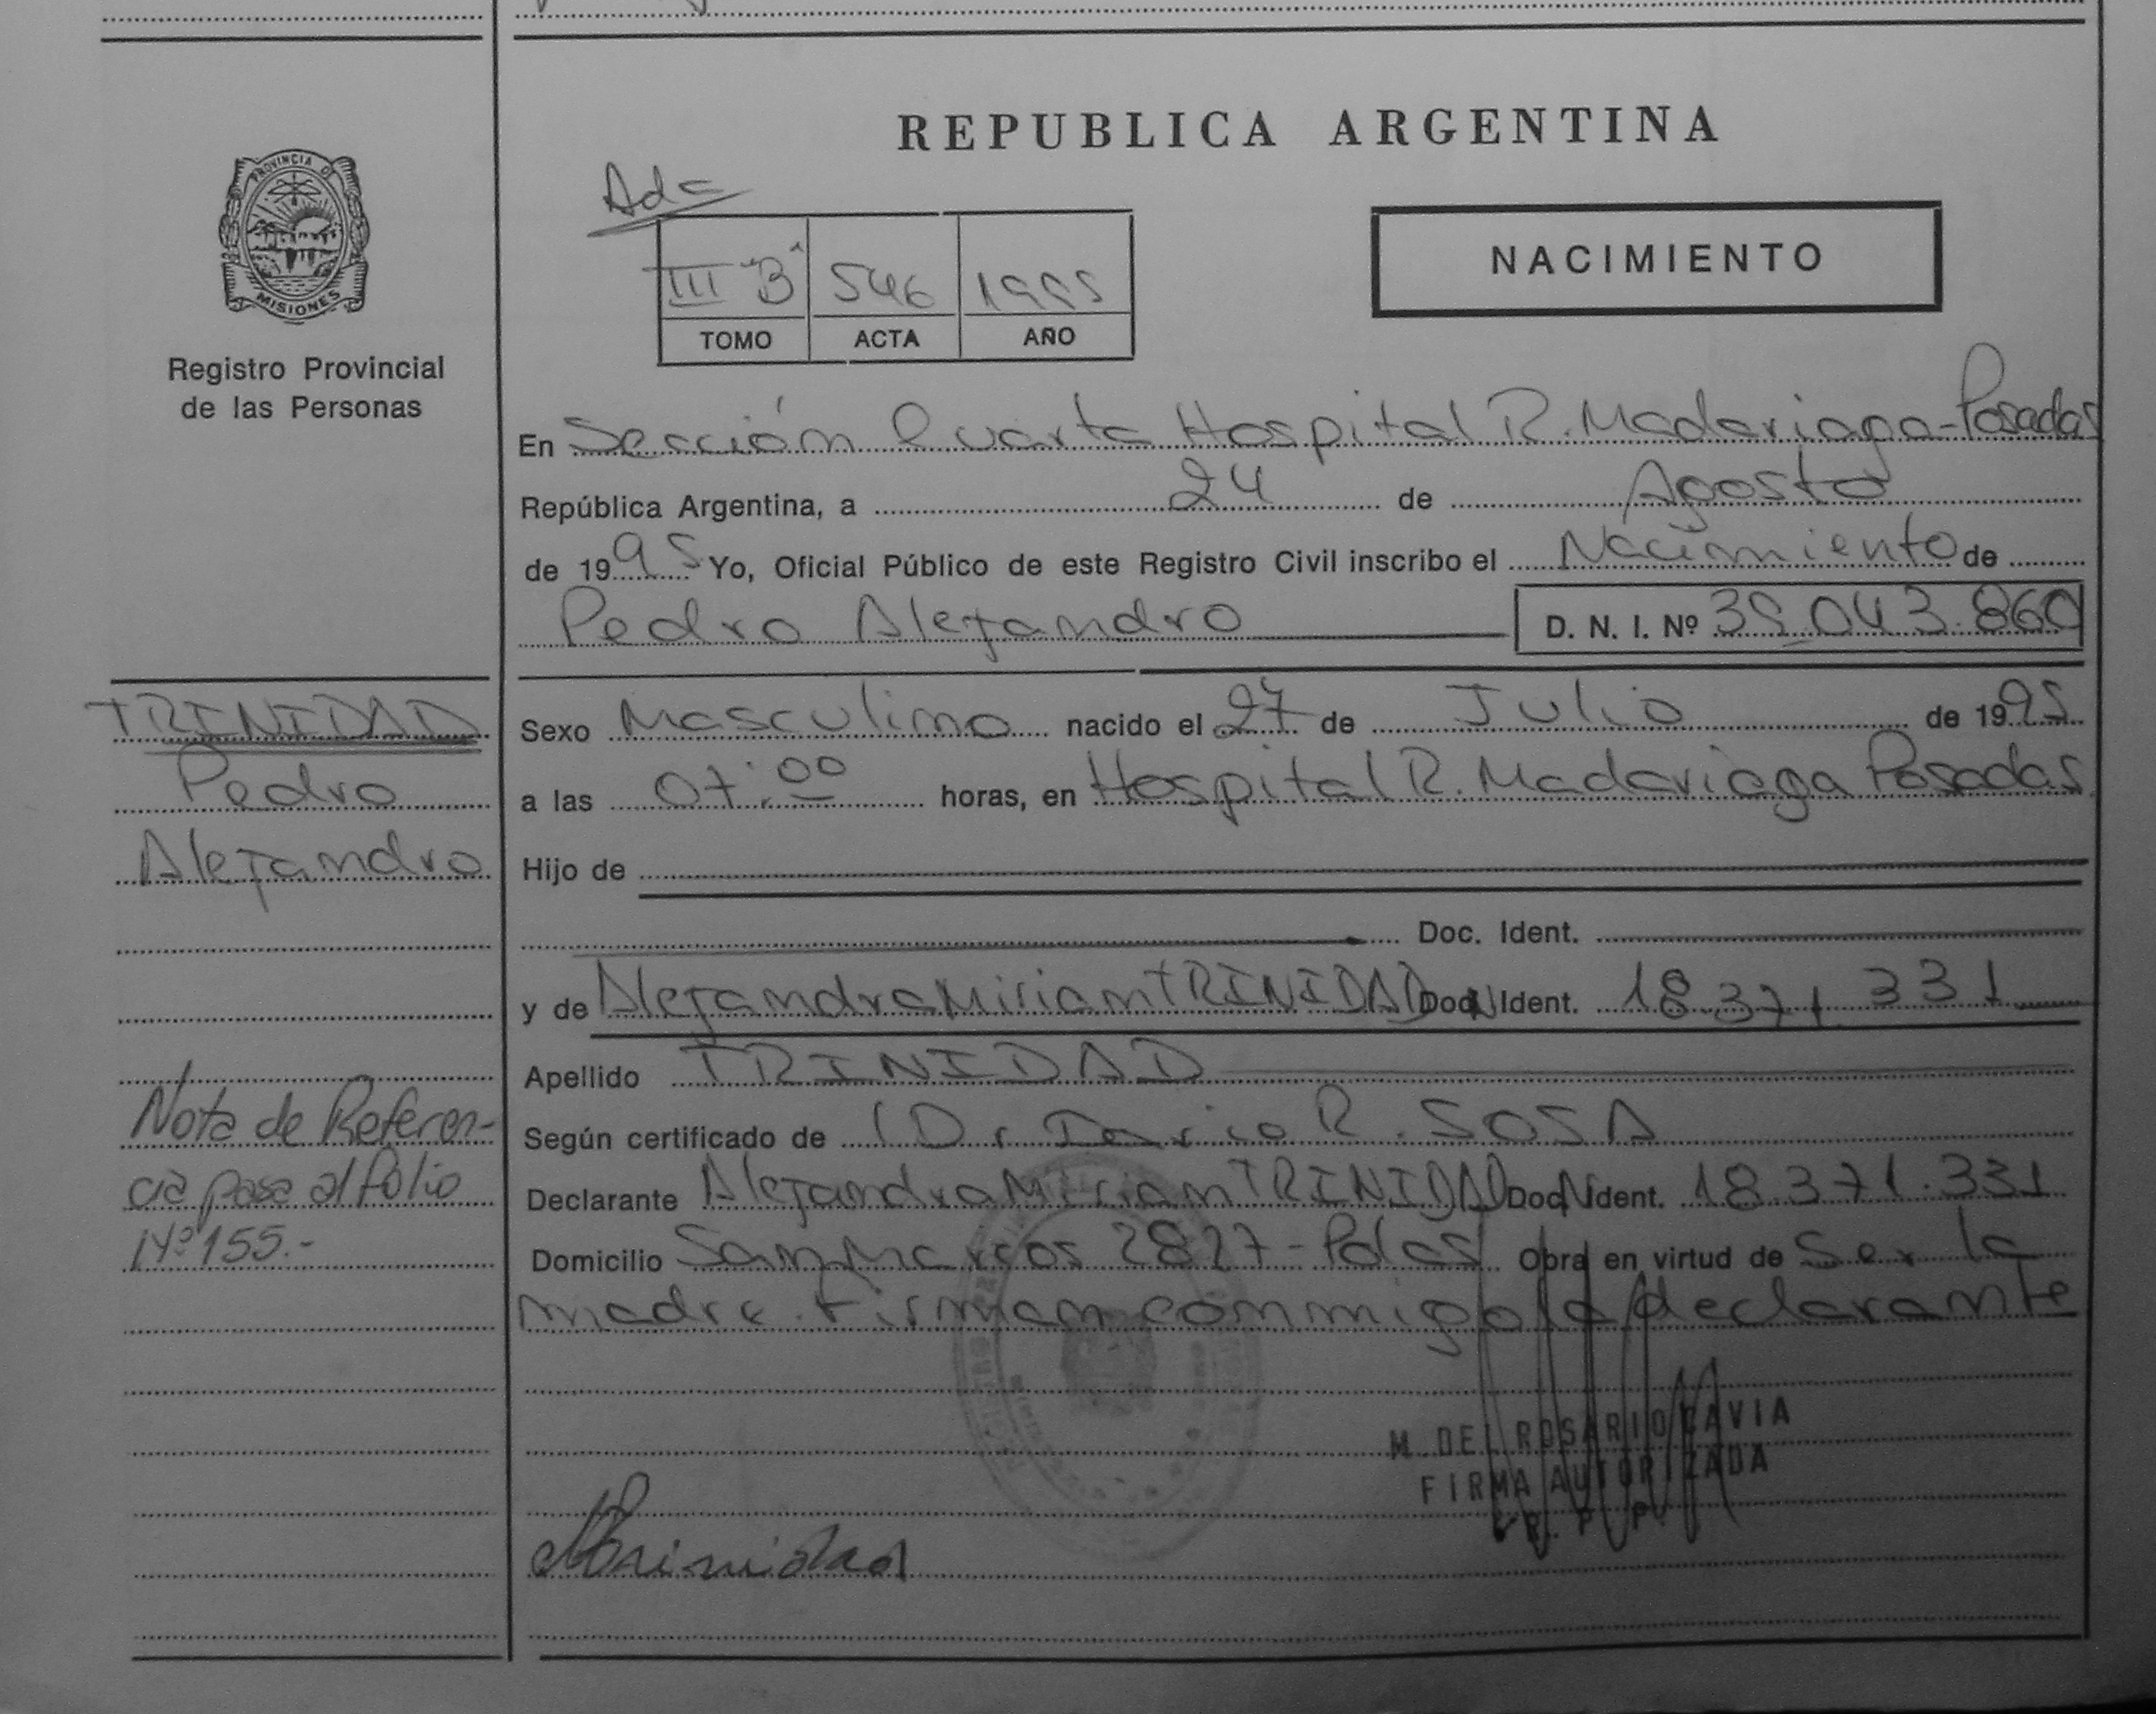 PROVINCIA DE
MISIONES
Registro Provincial
de las Personas
TRINIDAD
Pedro
Alejandro
Nota de Referen-
cia pasa al folio
Nº 155.-
REPUBLICA ARGENTINA
III "B" 546 1995
TOMO ACTA AÑO
NACIMIENTO
En Sección Cuarta Hospital R. Madariaga-Posadas
República Argentina, a 24 de Agosto
de 1995 Yo, Oficial Público de este Registro Civil inscribo el Nacimiento de
Pedro Alejandro D. N. I. Nº 39.043.860
Sexo Masculino nacido el 27 de Julio de 1995
a las 07:00 horas, en Hospital R. Madariaga Posadas
Hijo de
Doc. Ident.
y de Alejandra Miriam TRINIDAD Doc. Ident. 18.371.331
Apellido TRINIDAD
Según certificado de Dr R. SOSA
Declarante Alejandra Miriam TRINIDAD Doc. Ident. 18.371.331
Domicilio San Marcos 2827-Pdas Obra en virtud de Ser la
madre. Firman conmigo la declarante
M. DEL ROSARIO CAVIA
FIRMA AUTORIZADA
R. P. P.
Trinidad